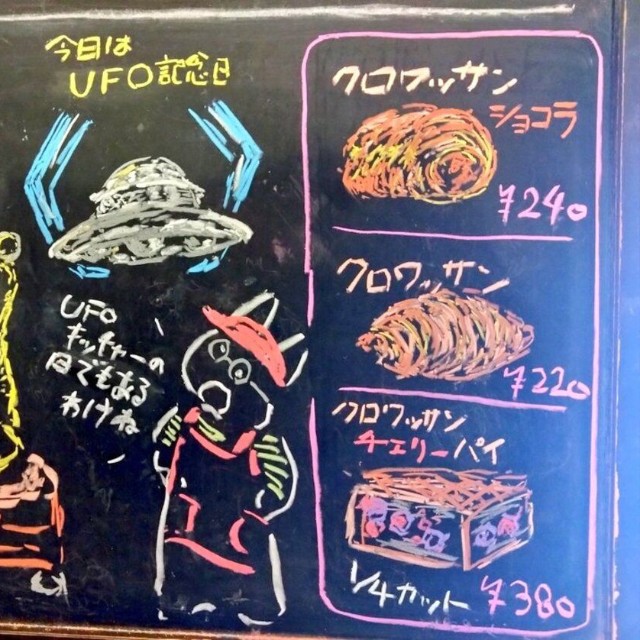 今日は
UFO記念日
UFO
キャッチャーの
日でもある
わけね
クロワッサン
ショコラ
¥240
クロワッサン
¥220
クロワッサン
チェリーパイ
1/4カット ¥380